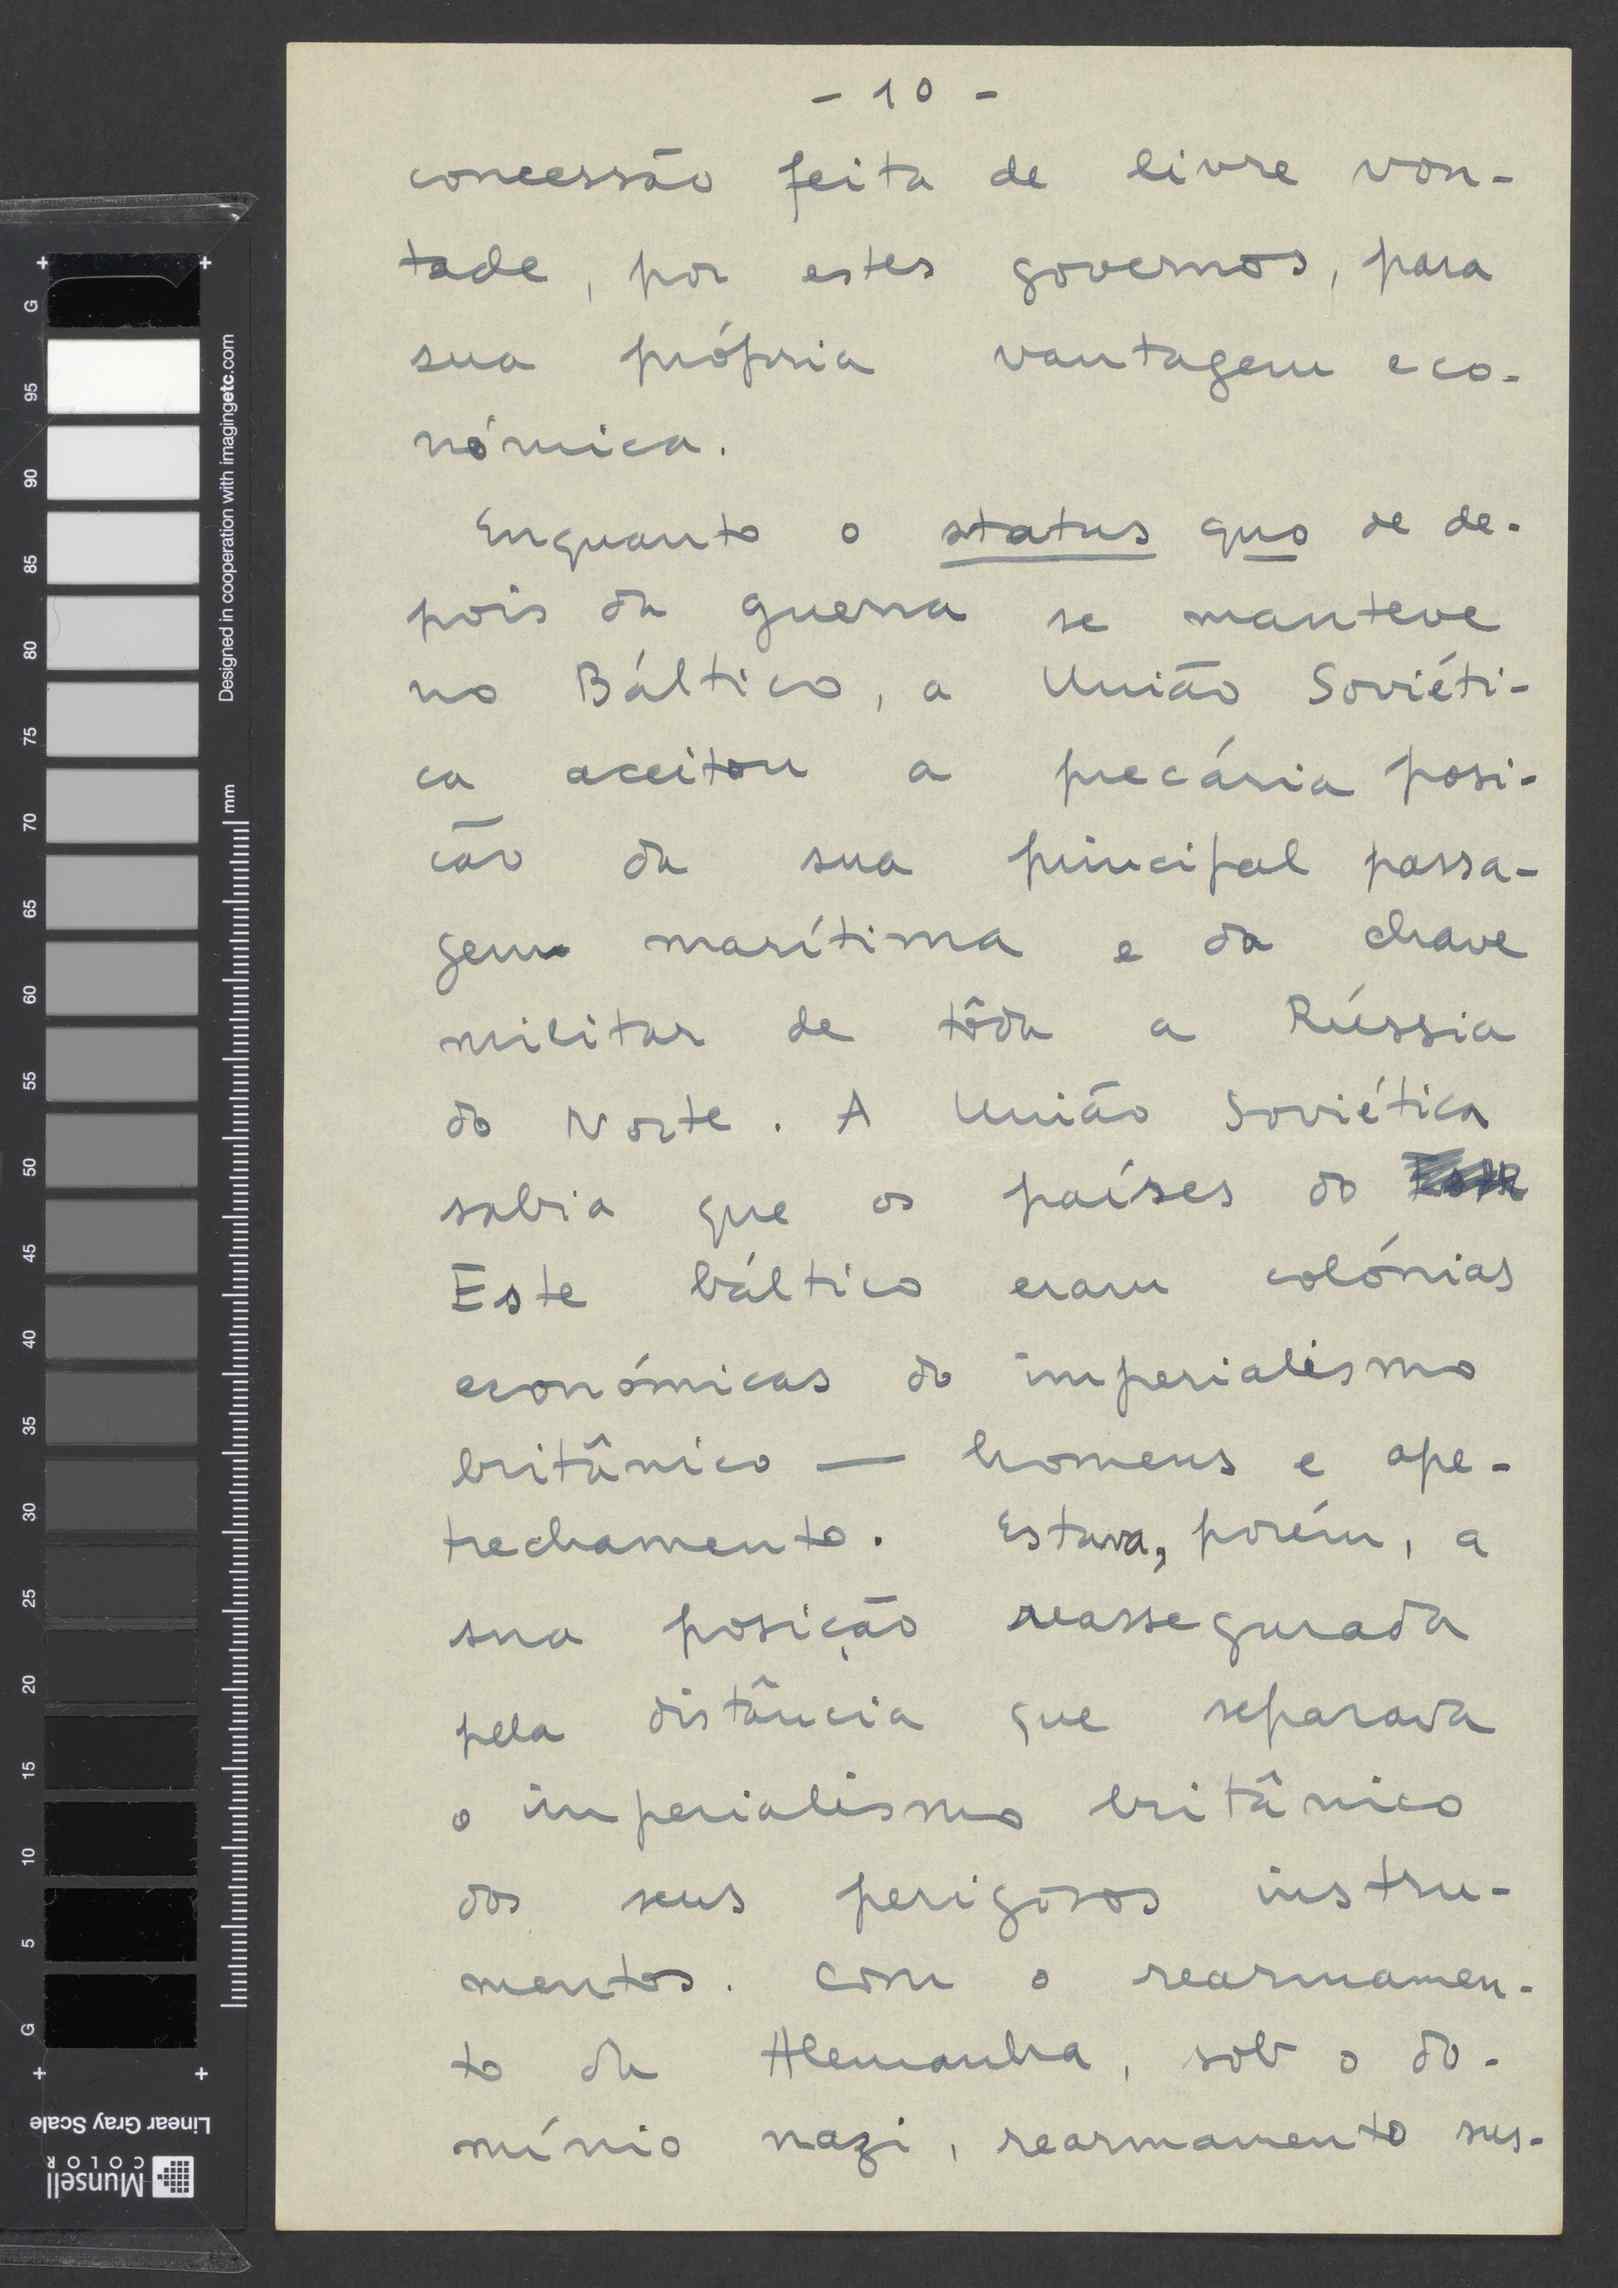 - 10 -
concessão feita de livre von-
tade, por estes governos, para
sua própria vantagem eco-
nómica.
Enquanto o status quo de de-
pois da guerra se manteve
no Báltico, a União Soviéti-
ca aceitou a precária posi-
cão da sua principal passa-
gem marítima e da chave
militar de tôda a Rússia
do Norte. A União Soviética
sabia que os países do
Este báltico eram colónias
económicas do imperialismo
britânico — homens e ape-
trechamento. Estava, porém, a
sua posição reassegurada
pela distância que separava
o imperialismo britânico
dos seus perigosos instru-
mentos. Com o rearmamen-
to da Alemanha, sob o do-
mínio nazi, rearmamento sus-
G
95
90
85
80
75
70
65
60
55
50
45
40
35
30
25
20
15
10
5
G
Designed in cooperation with imagingetc.com
mm
Linear Gray Scale
Munsell
COLOR